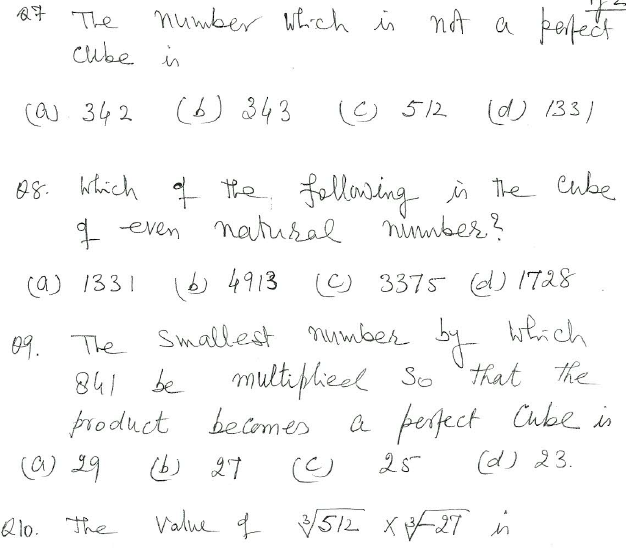 Q7 The number which is not a perfect
cube is
(a) 342 (b) 343 (c) 512 (d) 1331
Q8. Which of the following is the cube
of even natural number?
(a) 1331 (b) 4913 (c) 3375 (d) 1728
Q9. The smallest number by which
841 be multiplied so that the
product becomes a perfect cube is
(a) 29 (b) 27 (c) 25 (d) 23.
Q10. The value of ∛512 × ∛-27 is